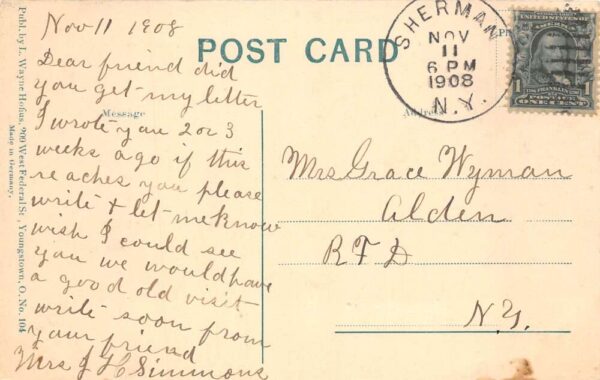 Nov 11 1908
Dear friend did
you get my letter
I wrote you 2 or 3
weeks ago if this
reaches you please
write & let me know
wish I could see
you we would have
a good old visit
write soon from
your friend
Mrs J H Simmons
POST CARD
Message
Address
SHERMAN
NOV
11
6 PM
1908
N.Y.
UNITED STATES OF AMERICA
1 1
FRANKLIN
POSTAGE
ONE CENT
Mrs Grace Wyman
Alden
R F D
N.Y.
Publ. by L. Wayne Hofius, 209 West Federal St., Youngstown, O. No. 104
Made in Germany.